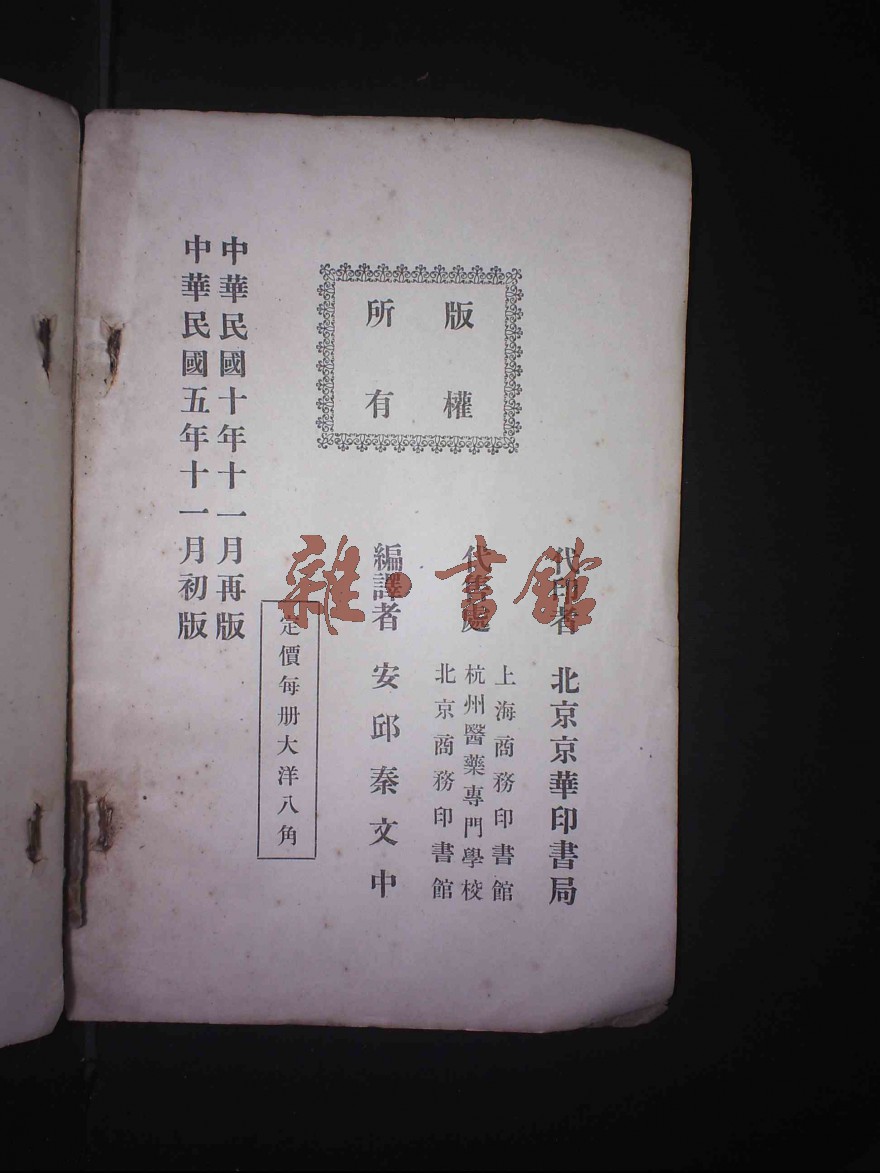 版權
所有
代印者 北京京華印書局
代售處
上海商務印書館
杭州醫藥專門學校
北京商務印書館
編譯者 安邱秦文中
定價每册大洋八角
中華民國十年十一月再版
中華民國五年十一月初版
雜·書館